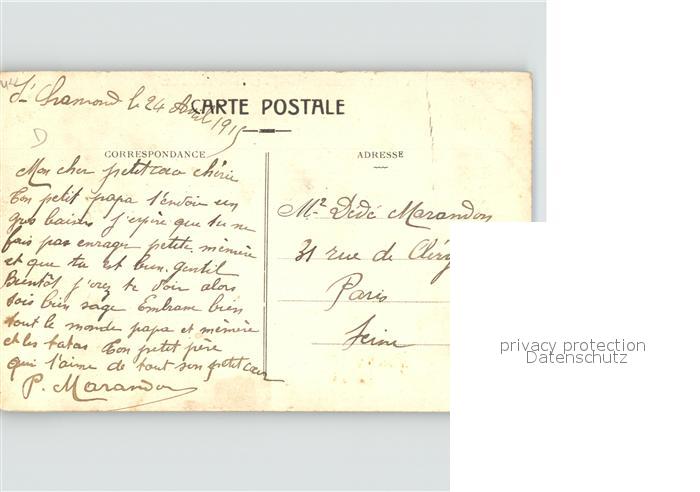 St Chamond le 24 Avril 1915
CARTE POSTALE
D
CORRESPONDANCE
ADRESSE
Mon cher petit coco chérie
Ton petit papa t'envoie un
gros baiser j'espère que tu ne
fais pas enrager petite mémère
et que tu est bien gentil
Bientôt j'irez te voir alors
sois bien sage Embrasse bien
tout le monde papa et mémère
et les tatas Ton petit père
qui t'aime de tout son petit cœur
P. Marandon
Mr Dédé Marandon
31 rue de Cléry
Paris
Seine
privacy protection
Datenschutz